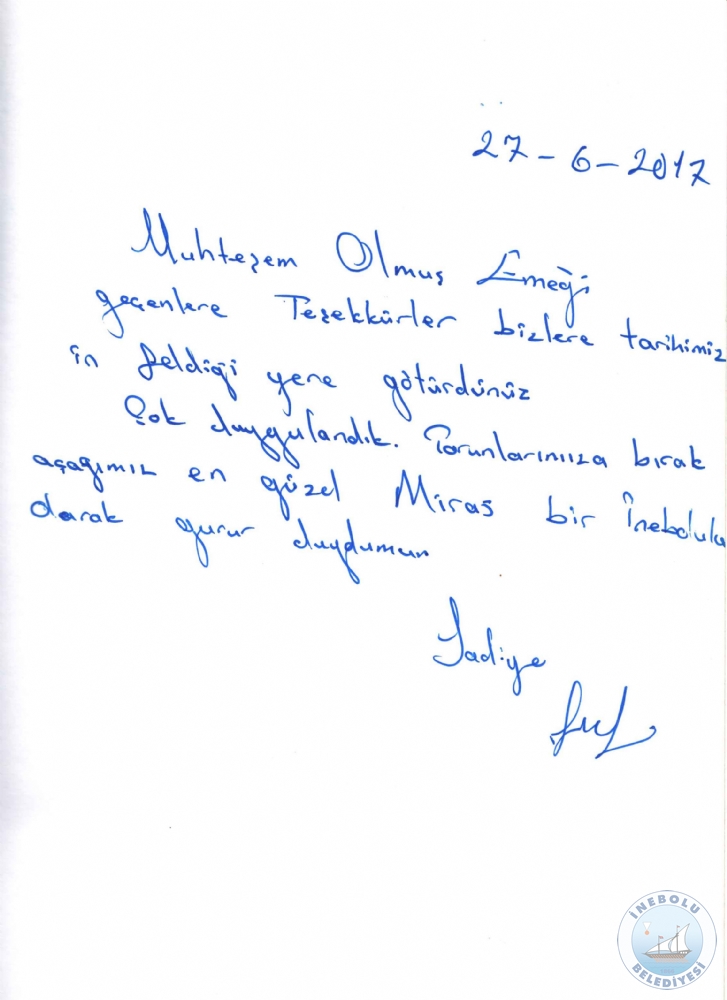 27-6-2017
Muhteşem Olmuş Emeği
geçenlere Teşekkürler bizlere tarihimiz
in geldiği yere götürdünüz
Çok duygulandık. Torunlarımıza bırak
açağımız en güzel Miras bir İnebolulu
olarak gurur duydumun
Sadiye
İNEBOLU
BELEDİYESİ